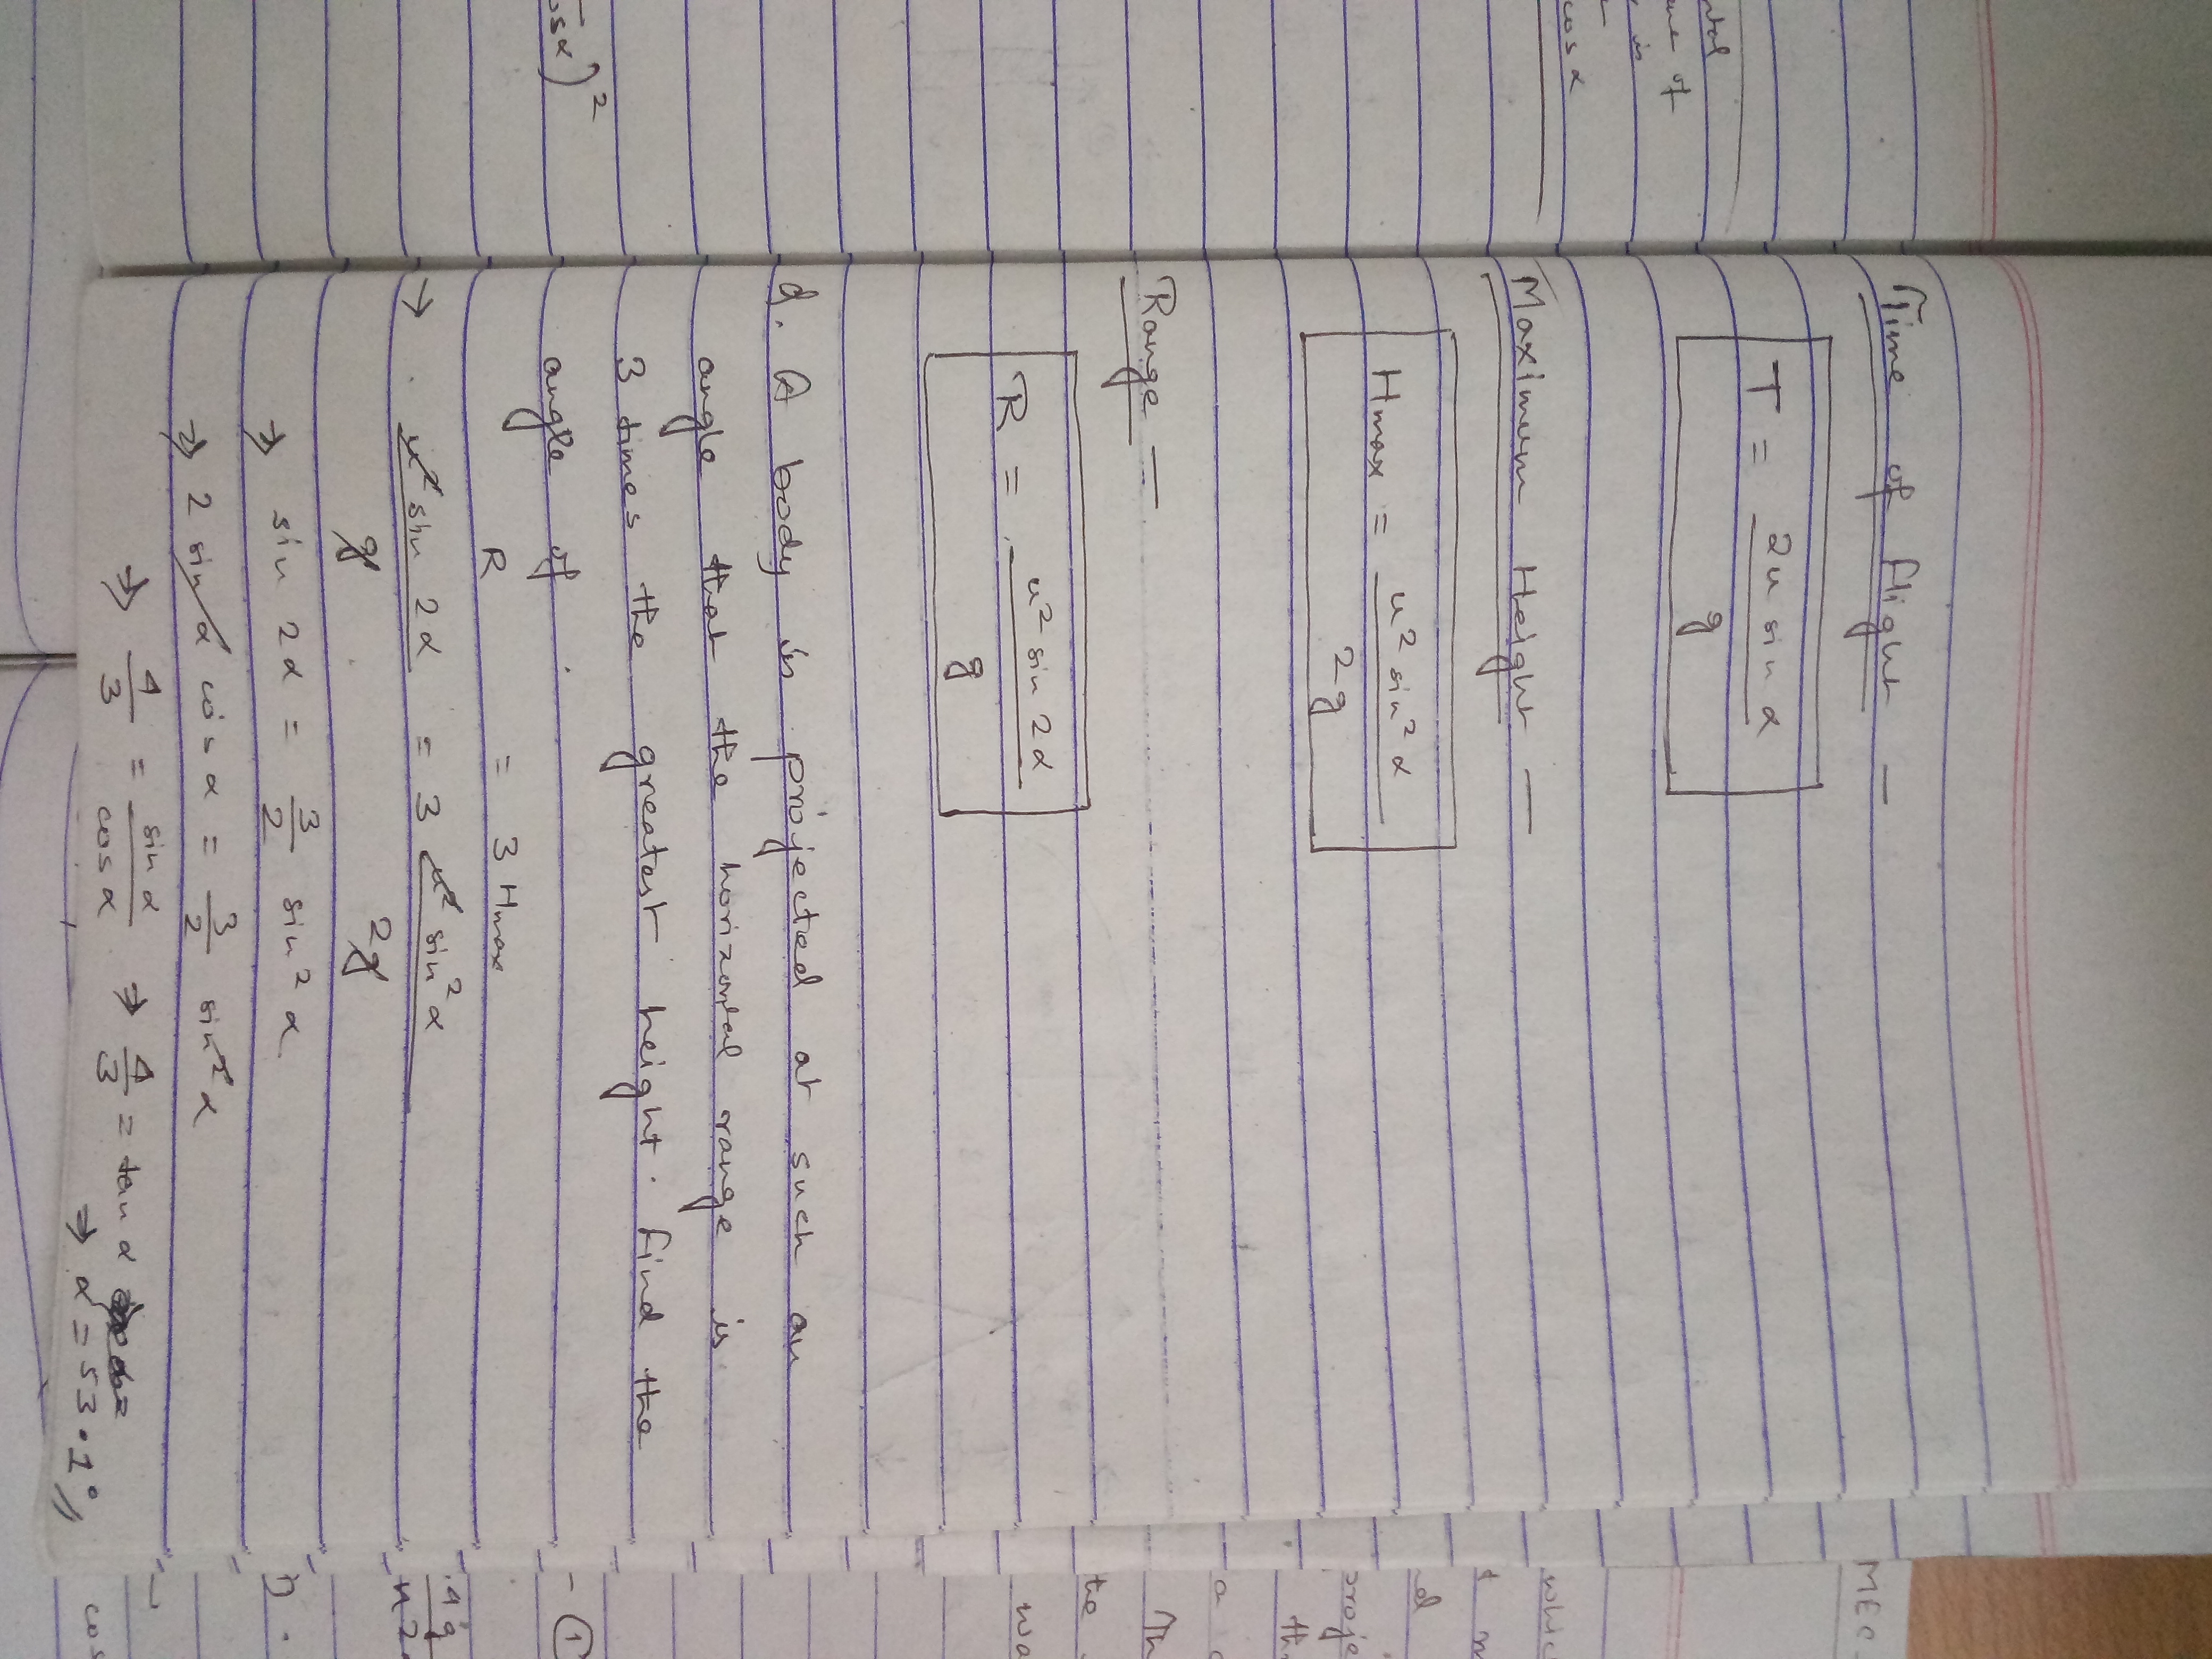 ntal
of
is
cos α
osα)²
Time of flight —
T = 2u sin α
g
Maximum Height —
Hmax = u² sin² α
2g
Range —
R = u² sin 2α
g
Q. A body is projected at such an
angle that the horizontal range is
3 times the greatest height. Find the
angle of .
R = 3 Hmax
→ u² sin 2α = 3 u² sin² α
g 2g
⇒ sin 2α = 3/2 sin² α
⇒ 2 sin α cos α = 3/2 sin² α
⇒ 4/3 = sin α / cos α ⇒ 4/3 = tan α
⇒ α = 53.1° //
MEC
whic
d
proje
th
a
Th
the
wa
- ①
cos